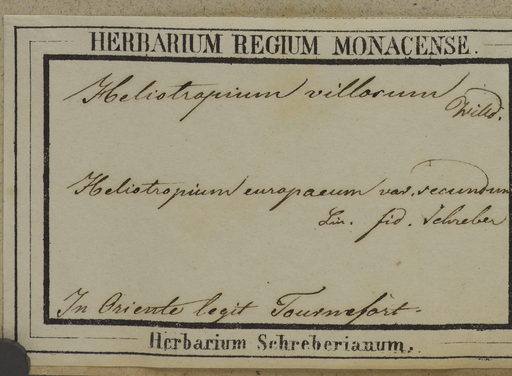 HERBARIUM REGIUM MONACENSE.
Heliotropium villosum
Willd.
Heliotropium europaeum var. secundum
Lin. fid. Schreber
In Oriente legit Tournefort.
Herbarium Schreberianum.